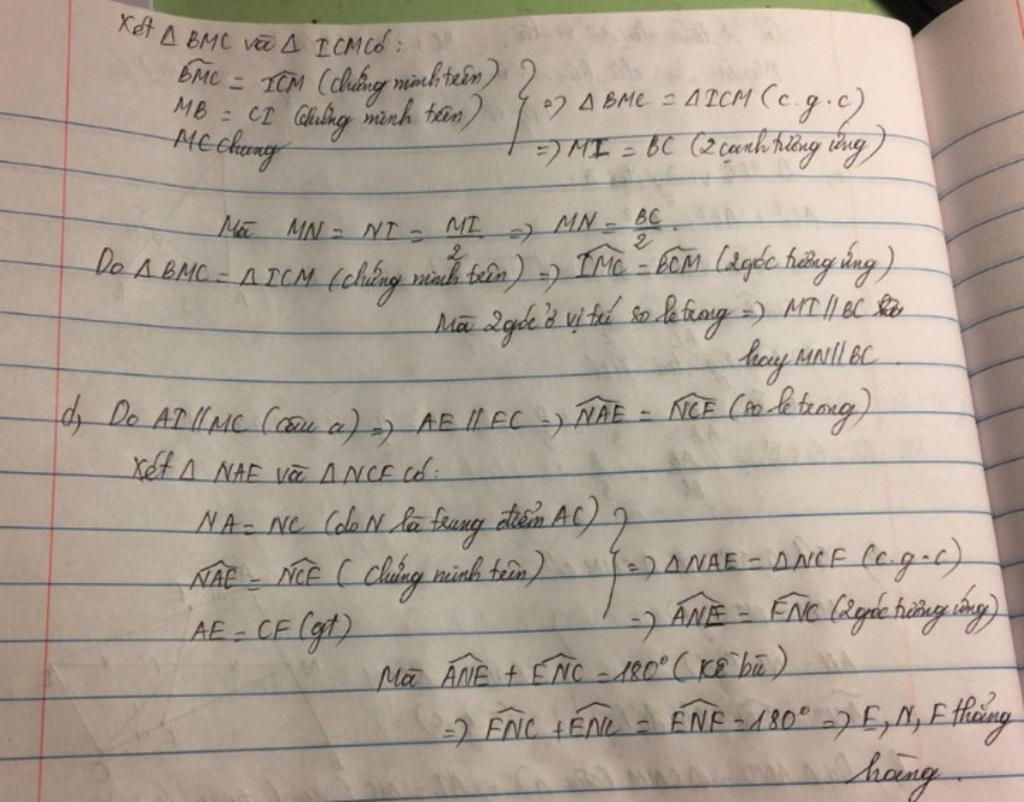 Xét Δ BMC và Δ ICM có:
BMC^ = ICM^ (chứng minh trên)
MB = CI (chứng minh trên)
MC chung
=> Δ BMC = Δ ICM (c.g.c)
=> MI = BC (2 cạnh tương ứng)
Mà MN = NI = MI/2 => MN = BC/2.
Do Δ BMC = Δ ICM (chứng minh trên) => IMC^ = BCM^ (2 góc tương ứng)
Mà 2 góc ở vị trí so le trong => MI // BC
hay MN // BC.
d, Do AI // MC (câu a) => AE // FC => NAE^ = NCF^ (so le trong)
Xét Δ NAE và Δ NCF có:
NA = NC (do N là trung điểm AC)
NAE^ = NCF^ (chứng minh trên)
AE = CF (gt)
=> Δ NAE = Δ NCF (c.g.c)
=> ANE^ = FNC^ (2 góc tương ứng)
Mà ANE^ + ENC^ = 180° (kề bù)
=> FNC^ + ENC^ = ENF^ = 180° => E, N, F thẳng
hàng.